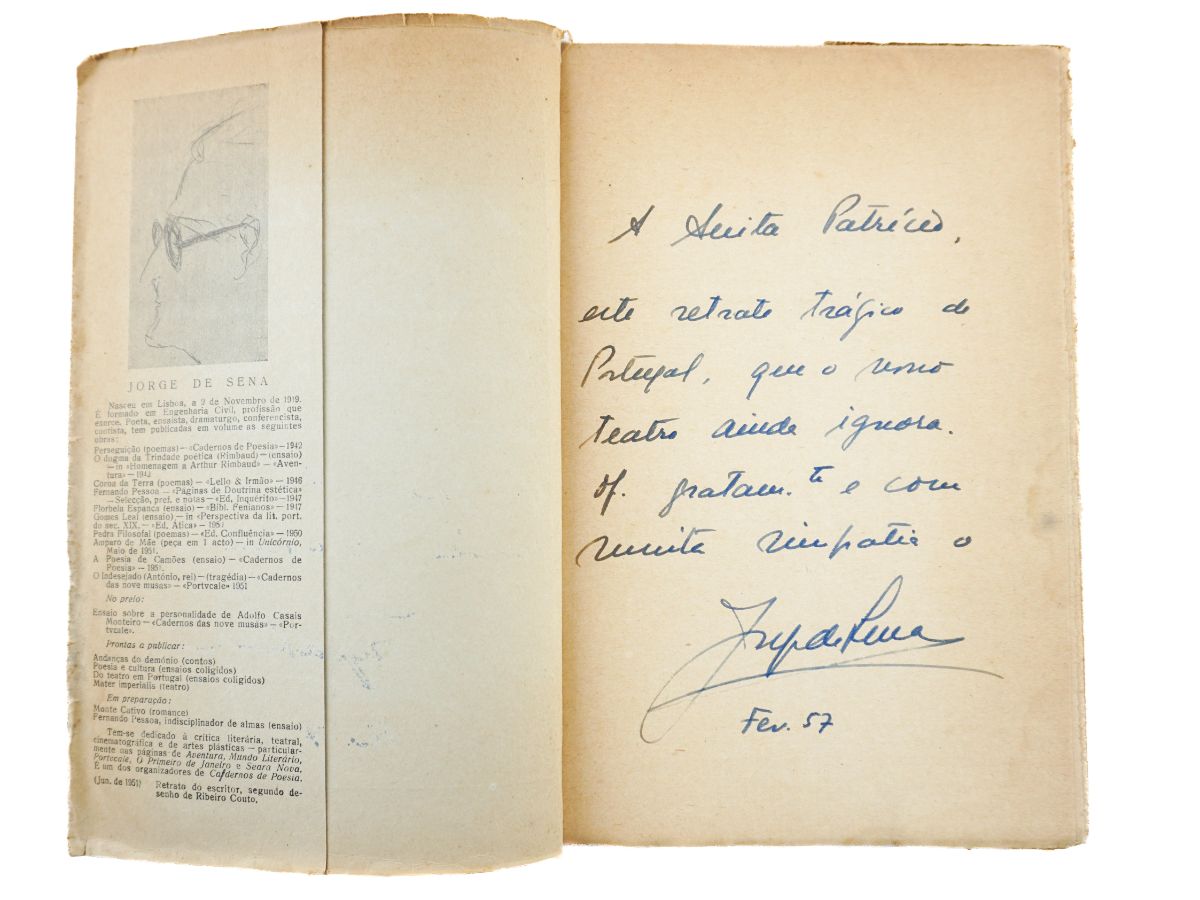 JORGE DE SENA
Nasceu em Lisboa, a 2 de Novembro de 1919.
É formado em Engenharia Civil, profissão que
exerce. Poeta, ensaista, dramaturgo, conferencista,
contista, tem publicadas em volume as seguintes
obras:
Perseguição (poemas) — «Cadernos de Poesia» — 1942
O dogma da Trindade poética (Rimbaud) — (ensaio)
— in «Homenagem a Arthur Rimbaud» — «Aven-
tura» — 1942
Coroa da Terra (poemas) — «Lello & Irmão» — 1946
Fernando Pessoa — «Páginas de Doutrina estética»
— Selecção, pref. e notas — «Ed. Inquérito» — 1947
Florbela Espanca (ensaio) — «Bibl. Fenianos» — 1947
Gomes Leal (ensaio) — in «Perspectiva da lit. port.
do sec. XIX. — «Ed. Atica» — 1950
Pedra Filosofal (poemas) — «Ed. Confluência» — 1950
Amparo de Mãe (peça em 1 acto) — in Unicórnio,
Maio de 1951.
A Poesia de Camões (ensaio) — «Cadernos de
Poesia» — 1951.
O Indesejado (António, rei) — (tragédia) — «Cadernos
das nove musas» — «Portvcale» 1951
No prelo:
Ensaio sobre a personalidade de Adolfo Casais
Monteiro — «Cadernos das nove musas» — «Por-
tvcale».
Prontas a publicar:
Andanças do demónio (contos)
Poesia e cultura (ensaios coligidos)
Do teatro em Portugal (ensaios coligidos)
Mater imperialis (teatro)
Em preparação:
Monte Cativo (romance)
Fernando Pessoa, indisciplinador de almas (ensaio)
Tem-se dedicado à crítica literária, teatral,
cinematográfica e de artes plásticas — particular-
mente nas páginas de Aventura, Mundo Literário,
Portvcale, O Primeiro de Janeiro e Seara Nova.
É um dos organizadores de Cadernos de Poesia.
(Jun. de 1951) Retrato do escritor, segundo de-
senho de Ribeiro Couto.
A Anita Patrício,
este retrato trágico de
Portugal, que o nosso
teatro ainda ignora.
of. gratam.te e com
muita simpatia o
Jorge de Sena
Fev. 57